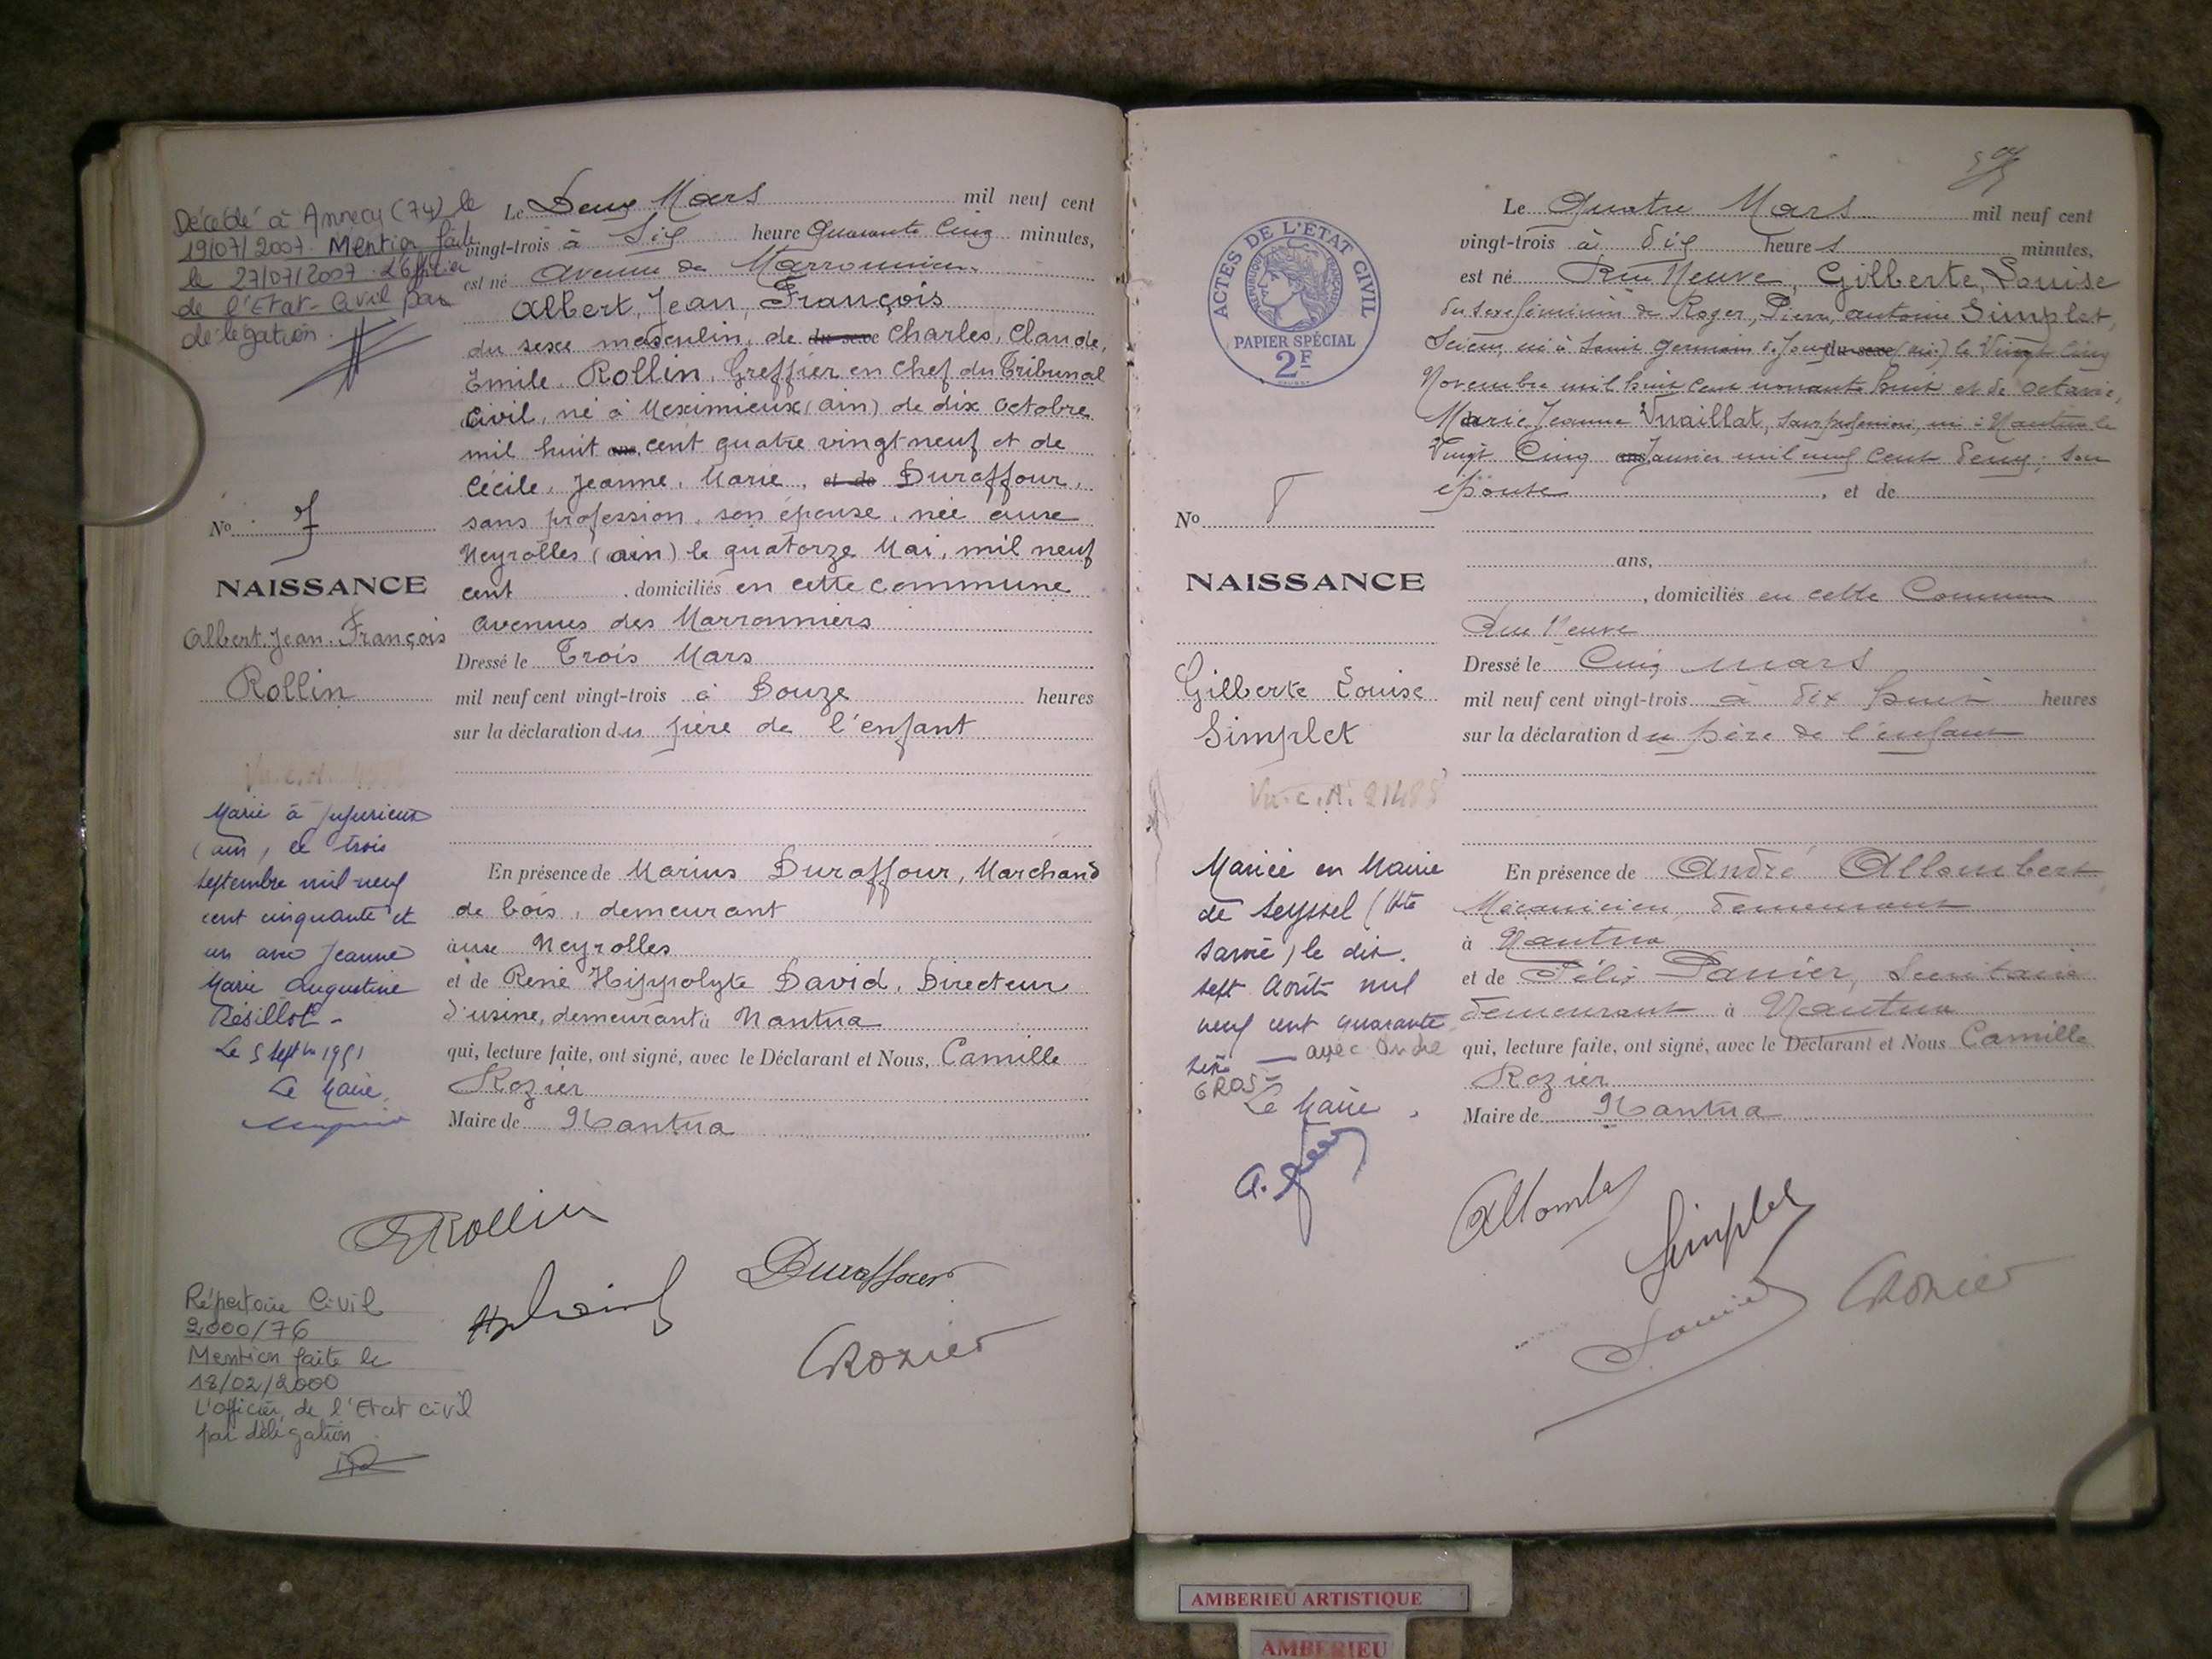 Décédé à Annecy (74) le
19/07/2007. Mention faite
le 27/07/2007. L'Officier
de l'Etat-Civil par
délégation.
No 7
NAISSANCE
Albert Jean François
Rollin
Marié à Jujurieux
(ain), le trois
septembre mil neuf
cent cinquante et
un avec Jeanne
Marie Augustine
Résillot -
Le 5 Septbre 1951
Le Maire,
Répertoire Civil
2000/76
Mention faite le
18/02/2000
L'officier de l'Etat civil
par délégation
Le Deux Mars mil neuf cent
vingt-trois à Six heure Quarante Cinq minutes,
est né avenue des Marronniers
Albert, Jean, François
du sexe masculin, de du sexe Charles, Claude,
Emile Rollin, Greffier en chef du Tribunal
Civil, né à Meximieux (ain) de dix Octobre
mil huit ans cent quatre vingt neuf et de
Cécile, Jeanne, Marie, et de Duraffour,
sans profession, son épouse, née aux
Neyrolles (ain) le quatorze Mai, mil neuf
cent , domiciliés en cette commune
Avenues des Marronniers
Dressé le Trois Mars
mil neuf cent vingt-trois à Douze heures
sur la déclaration du père de l'enfant
En présence de Marius Duraffour, Marchand
de bois, demeurant
aux Neyrolles
et de René Hippolyte David, Directeur
d'usine, demeurant à Nantua
qui, lecture faite, ont signé, avec le Déclarant et Nous, Camille
Rozier
Maire de Nantua
Rollin
Duraffour
CRozier
ACTES DE L'ÉTAT CIVIL
RÉPUBLIQUE FRANÇAISE
PAPIER SPÉCIAL
2F
No 8
NAISSANCE
Gilberte Louise
Simplet
Vu. C. N. 21488
Mariée en Mairie
de Seyssel (Hte
Savoie) le dix.
sept Août mil
neuf cent quarante
sept — avec André
GROS -
Le Maire,
Le Quatre Mars mil neuf cent
vingt-trois à dix heures minutes,
est né Rue Neuve, Gilberte, Louise
du sexe féminin de Roger, Pierre, Antoine Simplet,
Scieur, né à Saint Germain de Joux du sexe (Ain) le Vingt Cinq
Novembre mil huit cent nonante huit et de Octavie,
Marie Jeanne Vuaillat, sans profession, née à Nantua le
Vingt Cinq ans Janvier mil neuf cent deux, son
épouse , et de
ans,
, domiciliés en cette Commune
Rue Neuve
Dressé le Cinq mars
mil neuf cent vingt-trois à dix huit heures
sur la déclaration du père de l'enfant
En présence de André Allombert,
Mécanicien, demeurant
à Nantua
et de Félix Panier, Secrétaire
demeurant à Nantua
qui, lecture faite, ont signé, avec le Déclarant et Nous Camille
Rozier
Maire de Nantua
Simplet
CRozier
AMBERIEU ARTISTIQUE
AMBERIEU